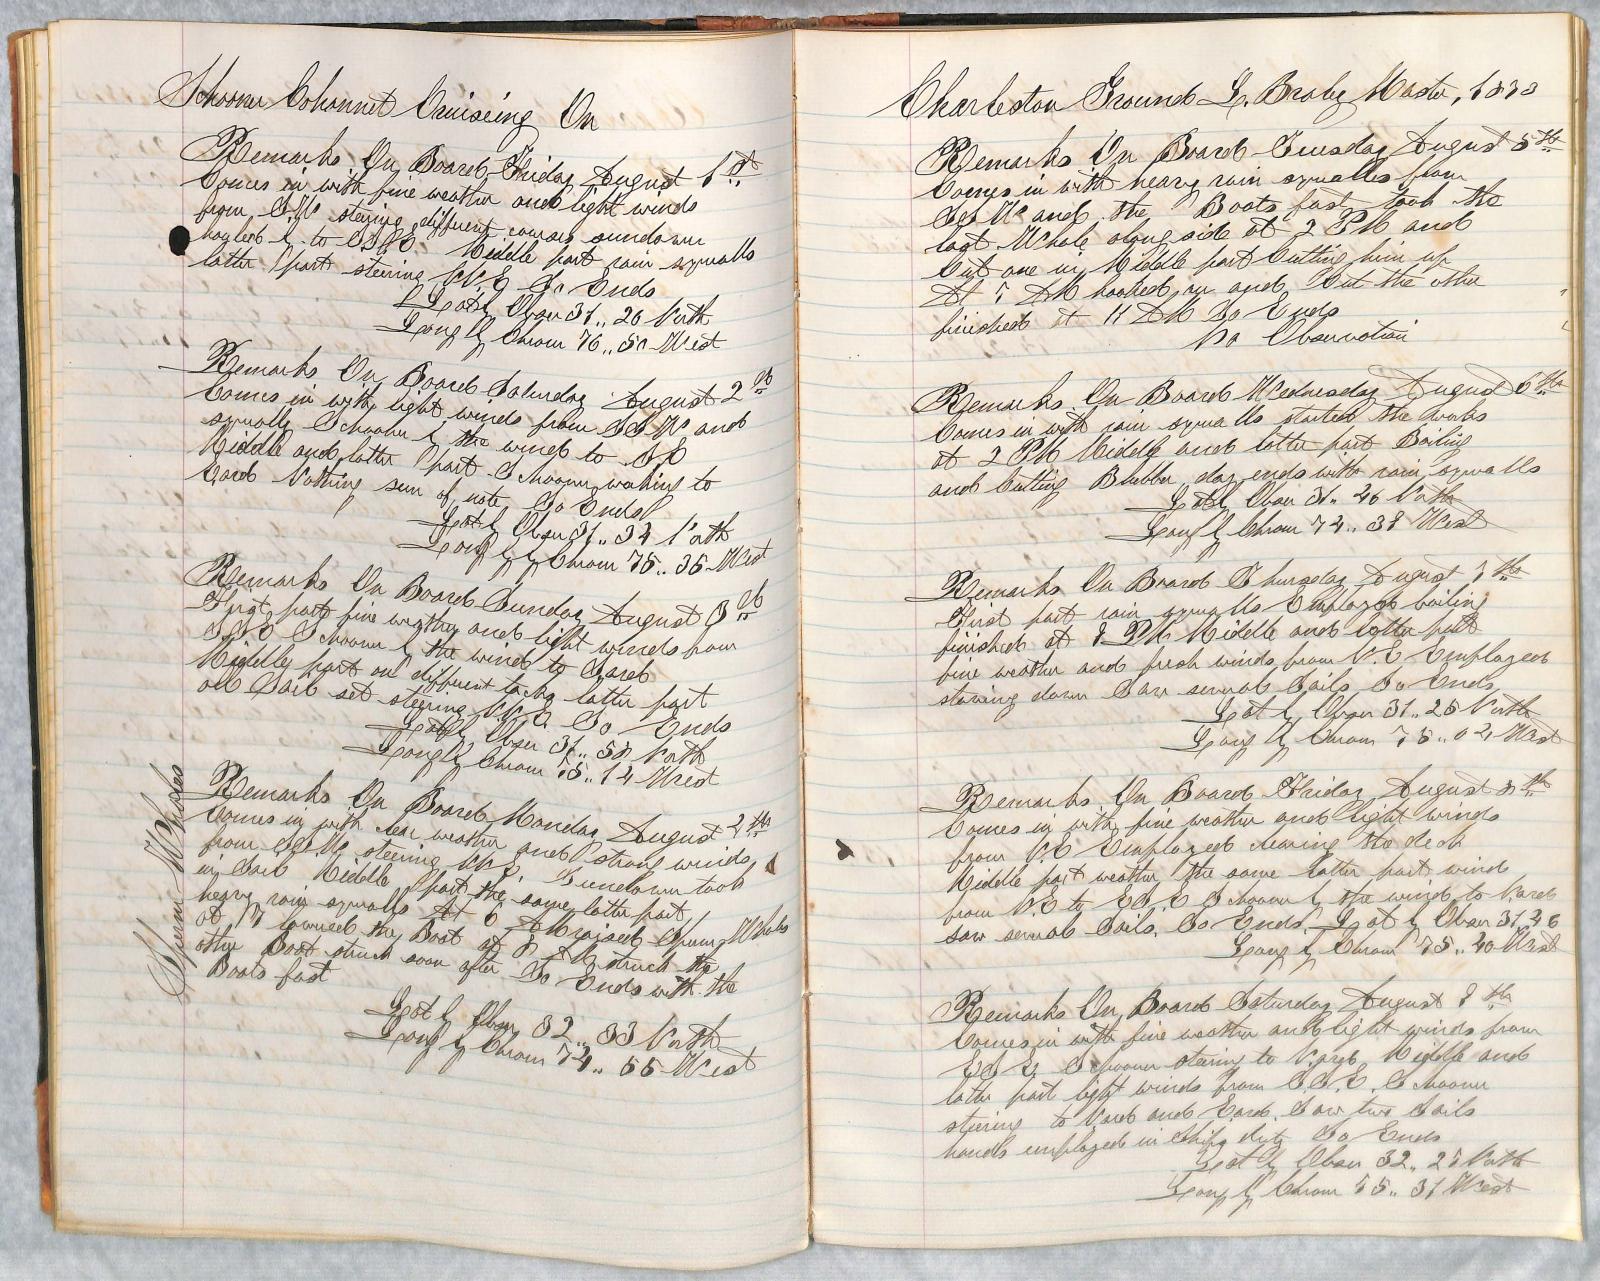 Schooner Cohannet Cruiseing On
Remarks On Board Friday August 1st
Comes in with fine weather and light winds
from S.W. steering different courses sundown
hauled by to E.S.E. Middle part rain squalls
latter part steering N.E. So Ends
Lat by Obser 31.. 20 North
Long by Chrom 76.. 50 West
Remarks On Board Saturday August 2 d
Comes in with light winds from S.S.W. and
squally Schooner by the wind to S.E
Middle and latter part Schooner working to
Eard Nothing seen of note So Ends
Lat by Obser 31.. 34 North
Long by Chrom 75.. 35 West
Remarks On Board Sunday August 3 d
First part fine weather and light winds from
S.S.E Schooner by the wind to Eard
Middle part on different tacks latter part
all Sail set steering N.E. So Ends
Lat by Obser 31.. 58 North
Long by Chrom 75.. 14 West
Sperm Whales
Remarks On Board Monday August 4th
Comes in with clear weather and strong winds
from S.S.W. steering N.E. Sundown took
in Sail Middle part the same latter part
heavy rain squalls At 6 AM raised Sperm Whales
at 7 lowered the Boat at 8 AM struck the
other Boat struck soon after So Ends with the
Boats fast
Lat by Obser 32.. 33 North
Long by Chrom 74.. 55 West
Charleston Ground L. Braley Master, 1873
Remarks On Board Tuesday August 5th
Comes in with heavy rain squalls from
S.S.W. and the Boats fast took the
last Whale along side at 2 PM and
Cut one in, Middle part Cutting him up
At 7 AM hooked on and Cut the other
finished at 11 AM So Ends
No Observation
Remarks On Board Wednesday August 6th
Comes in with rain squalls started the works
at 2 PM Middle and latter part Boiling
and Cutting Blubber day ends with rain squalls
Lat by Obser 31.. 46 North
Long by Chrom 74.. 38 West
Remarks On Board Thursday August 7th
First part rain squalls Employed boiling
finished at 8 PM Middle and latter part
fine weather and fresh winds from N.E Employed
stowing down Saw several Sails So Ends
Lat by Obser 31.. 25 North
Long by Chrom 75.. 04 West
Remarks On Board Friday August 8th
Comes in with fine weather and light winds
from N.E Employed clearing the deck
Middle part weather the same latter part wind
from N.E to E.S.E Schooner by the wind to Nard
saw several Sails. So Ends. Lat by Obser 31.46
Long by Chrom 75.. 40 West
Remarks On Board Saturday August 9th
Comes in with fine weather and light winds from
E.S.E. Schooner steering to Nard Middle and
latter part light winds from S.S.E. Schooner
steering to Nard and Eard. Saw two Sails
hands employed in Ships duty So Ends
Lat by Obser 32.. 27 North
Long by Chrom 75.. 31 West